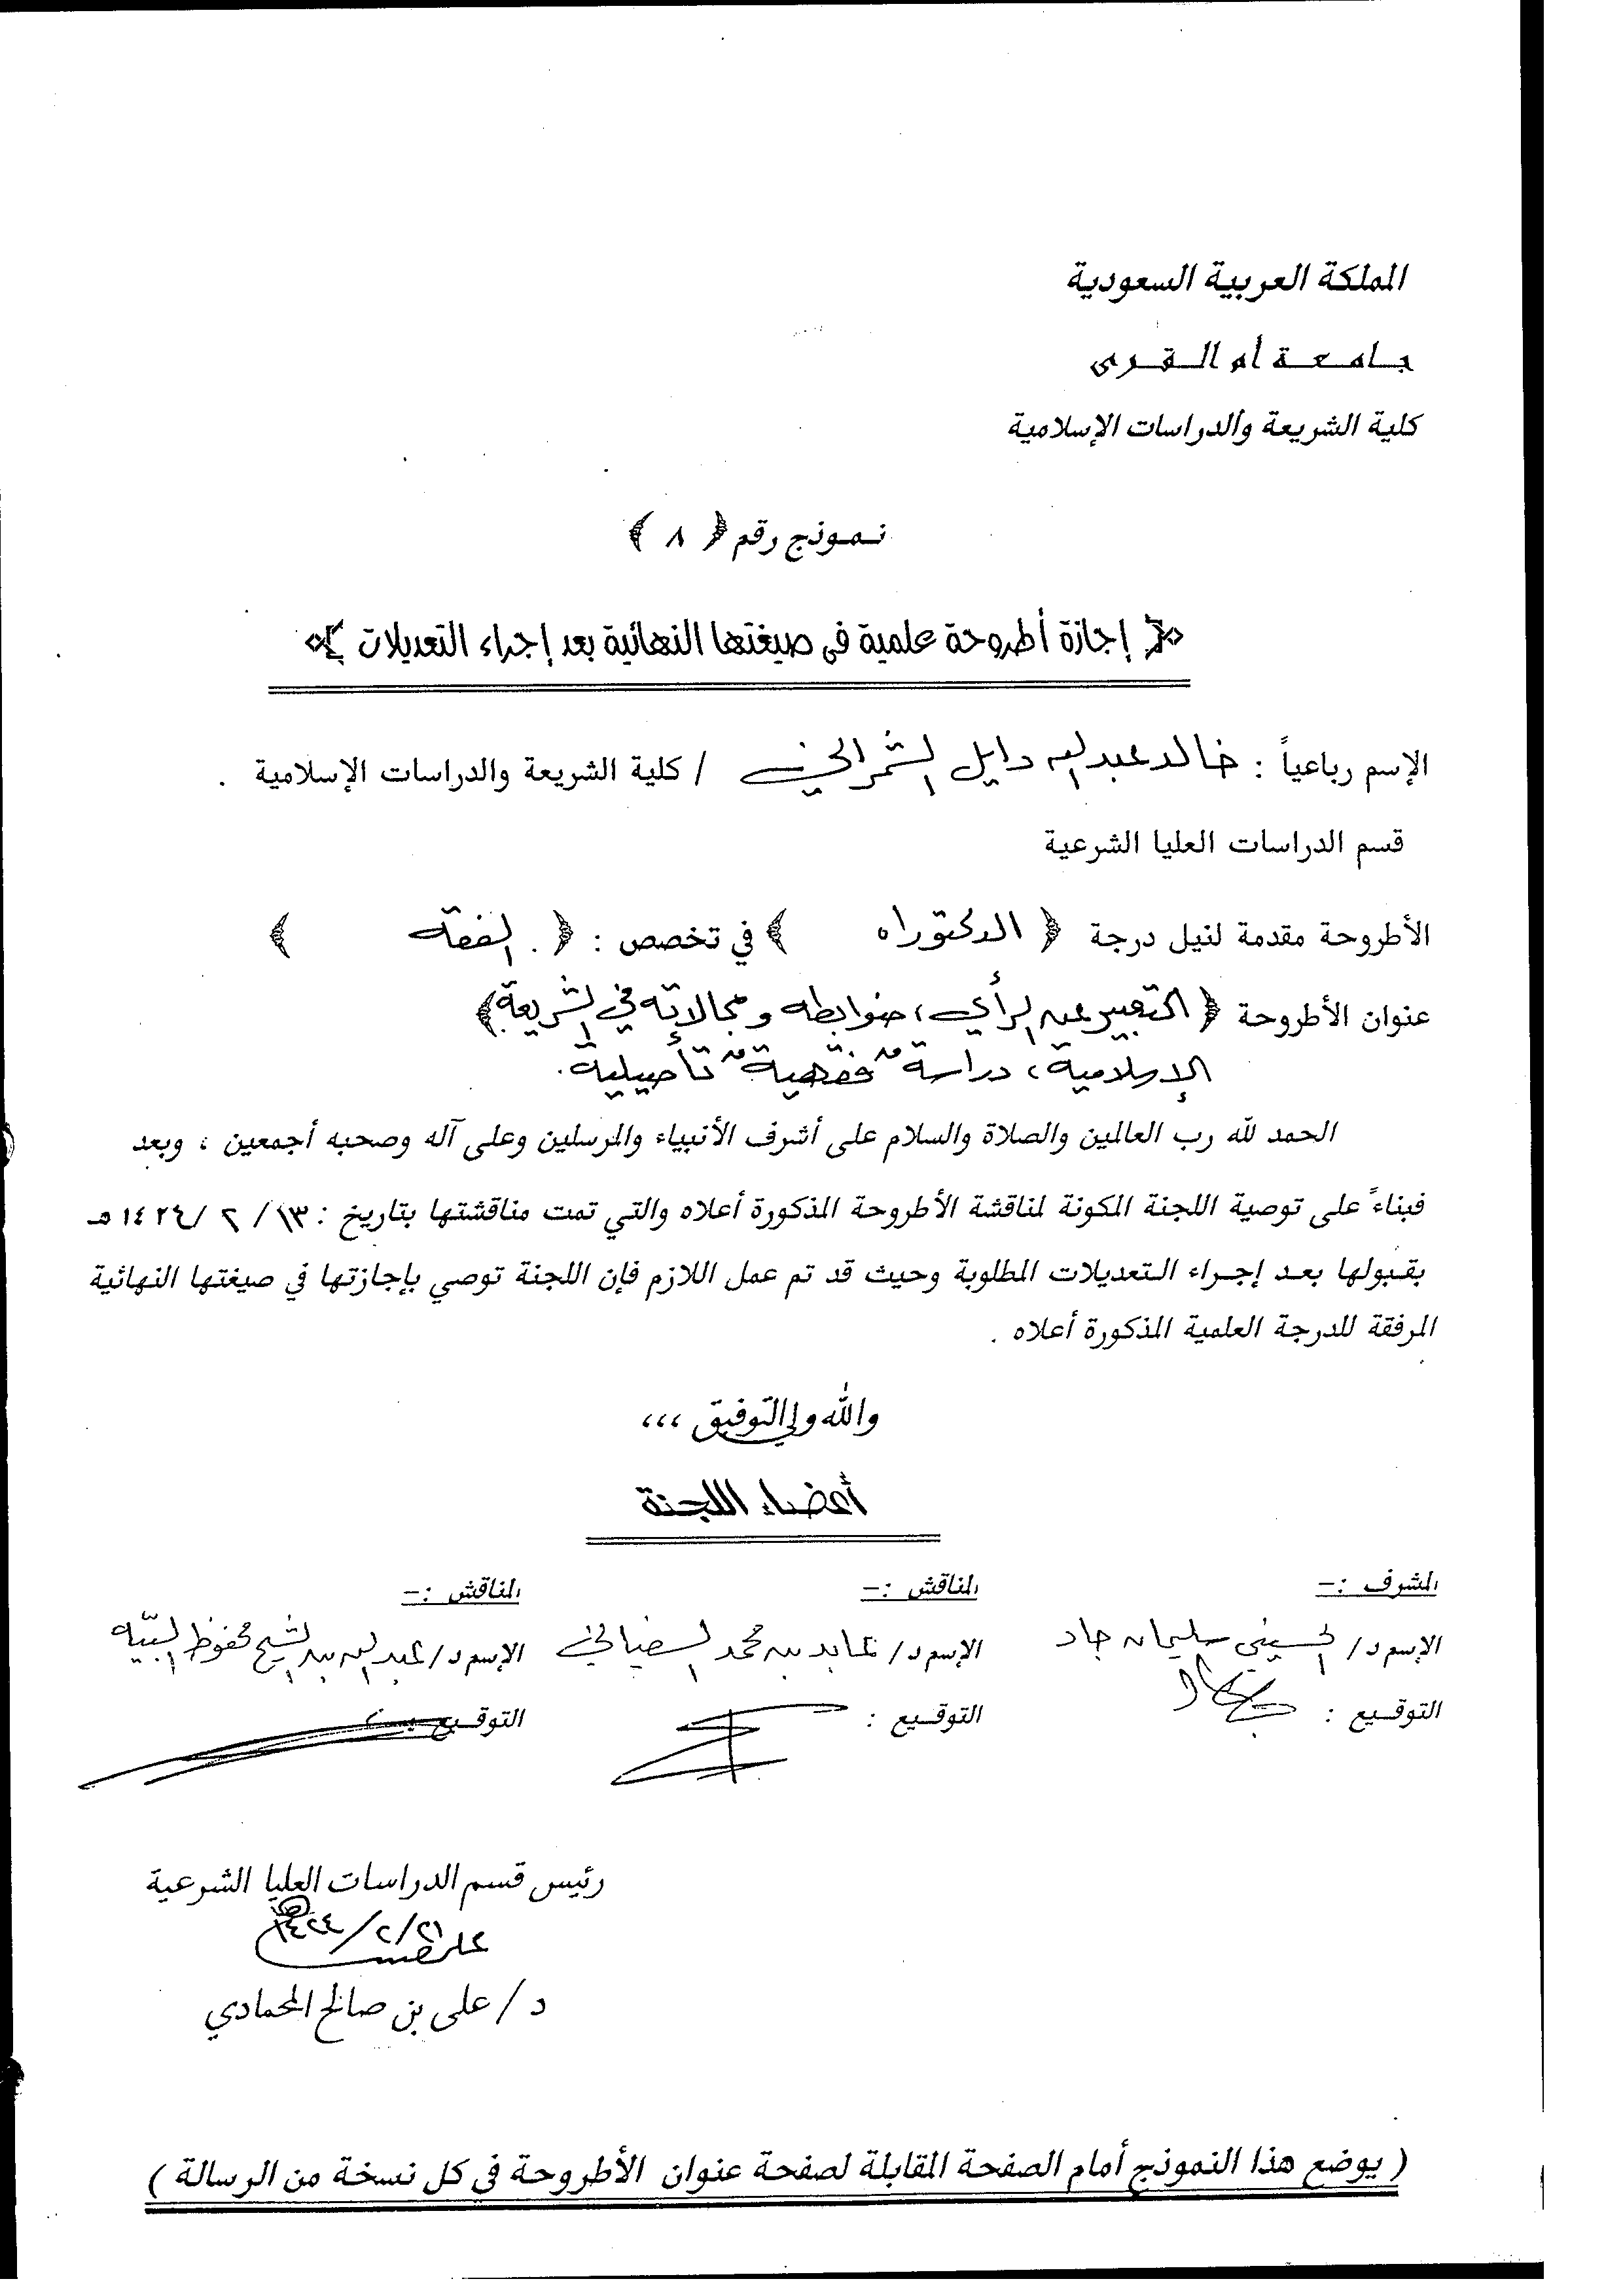 المملكة العربية السعودية
جامعة أم القرى
كلية الشريعة والدراسات الإسلامية
نموذج رقم ﴿ ٨ ﴾
﴿ إجازة أطروحة علمية في صيغتها النهائية بعد إجراء التعديلات ﴾
الإسم رباعياً : خالد عبد الله دايل الشمراني / كلية الشريعة والدراسات الإسلامية .
قسم الدراسات العليا الشرعية
الأطروحة مقدمة لنيل درجة ﴿ الدكتوراه ﴾ في تخصص : ﴿ الفقه ﴾
عنوان الأطروحة ﴿ التعبير عن الرأي ، ضوابطه ومجالاته في الشريعة ﴾
الإسلامية ، دراسة فقهية تأصيلية .
الحمد لله رب العالمين والصلاة والسلام على أشرف الأنبياء والمرسلين وعلى آله وصحبه أجمعين ، وبعد
فبناءً على توصية اللجنة المكونة لمناقشة الأطروحة المذكورة أعلاه والتي تمت مناقشتها بتاريخ : ١٣ / ٢ / ١٤٢٤ هـ
بقبولها بعد إجراء التعديلات المطلوبة وحيث قد تم عمل اللازم فإن اللجنة توصي بإجازتها في صيغتها النهائية
المرفقة للدرجة العلمية المذكورة أعلاه .
والله ولي التوفيق ،،،
أعضاء اللجنة
المشرف :- المناقش :- المناقش :-
الإسم د/ الحسيني سليمان جاد الإسم د/ عابد بن محمد السفياني الإسم د/ عبد الله بن الشيخ محفوظ البيّه
التوقيع : التوقيع : التوقيع :
رئيس قسم الدراسات العليا الشرعية
٢١ / ٢ / ١٤٢٤
د / على بن صالح المحمادي
( يوضع هذا النموذج أمام الصفحة المقابلة لصفحة عنوان الأطروحة في كل نسخة من الرسالة )